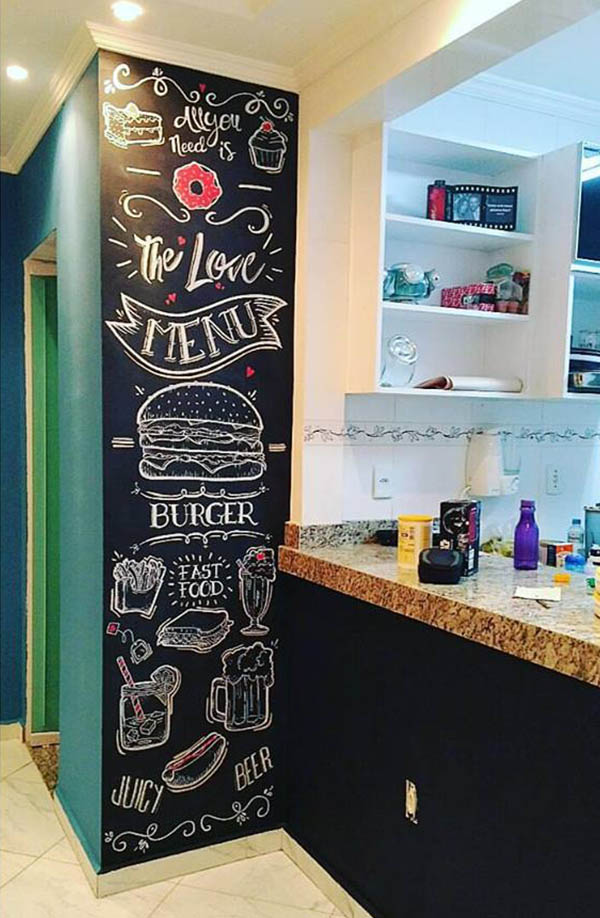 All you
Need is
The Love
MENU
BURGER
FAST
FOOD
JUICY
BEER